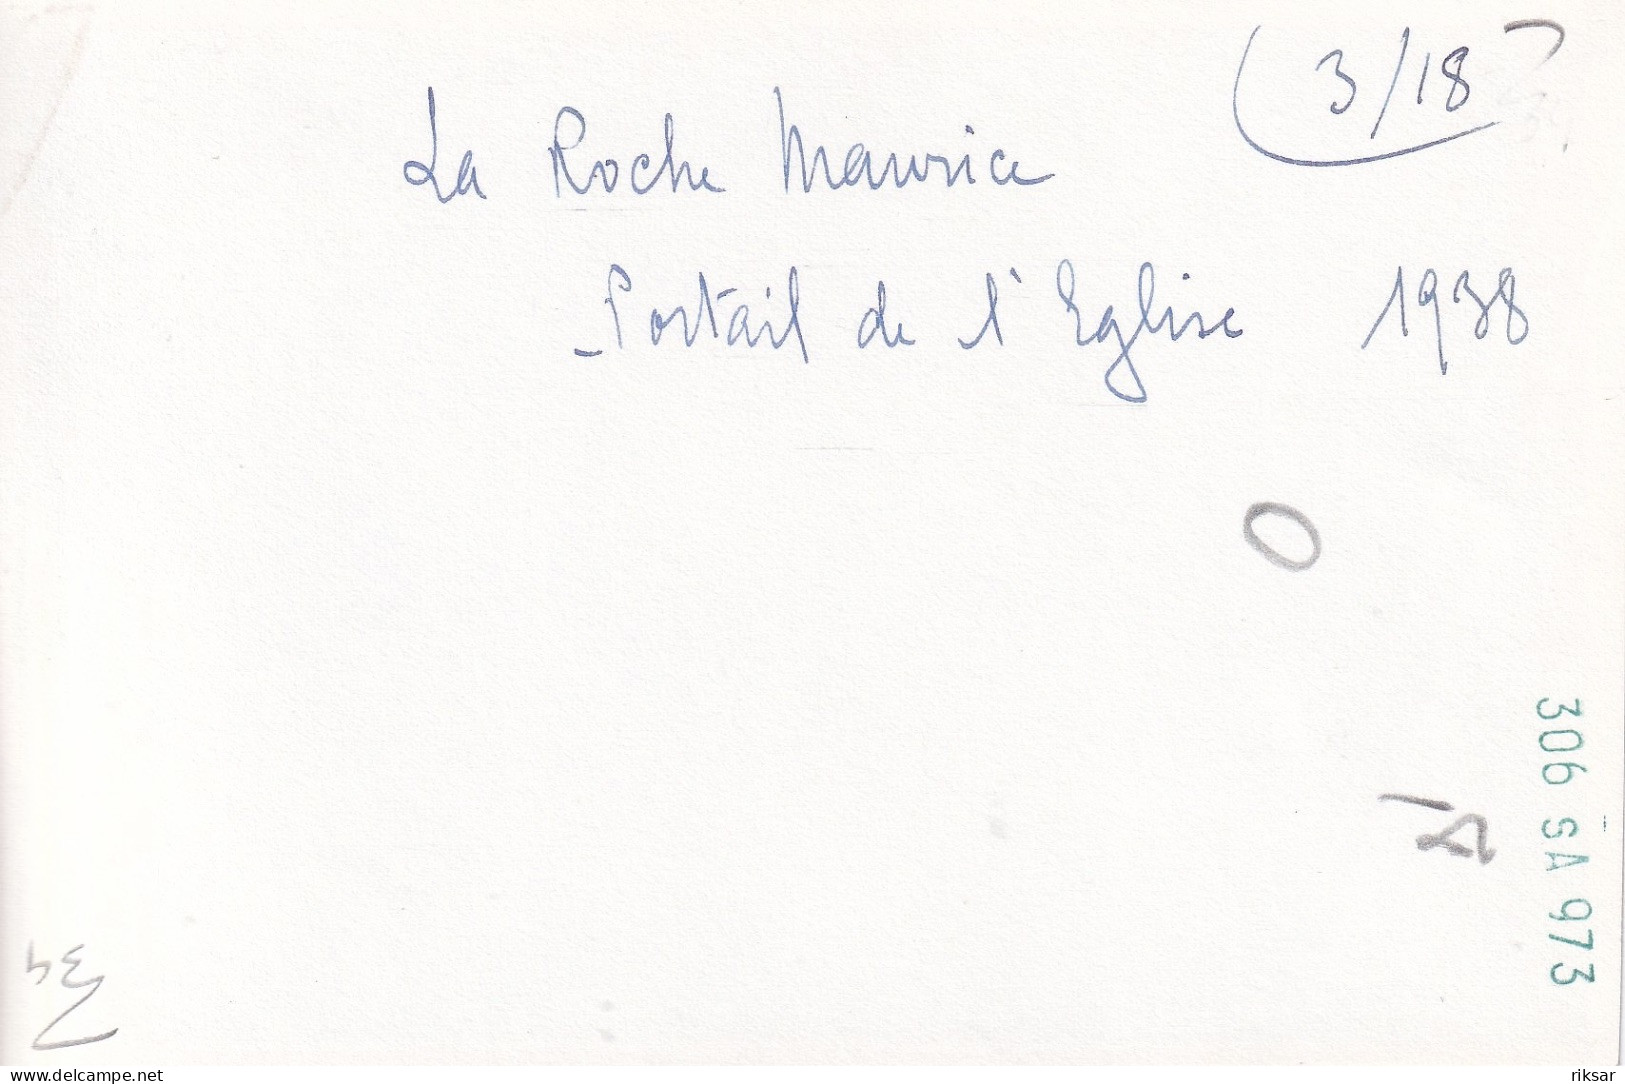 3/18
La Roche Maurice
- Portail de l'Eglise 1938
0
306 SA 973
34
delcampe.net
riksar